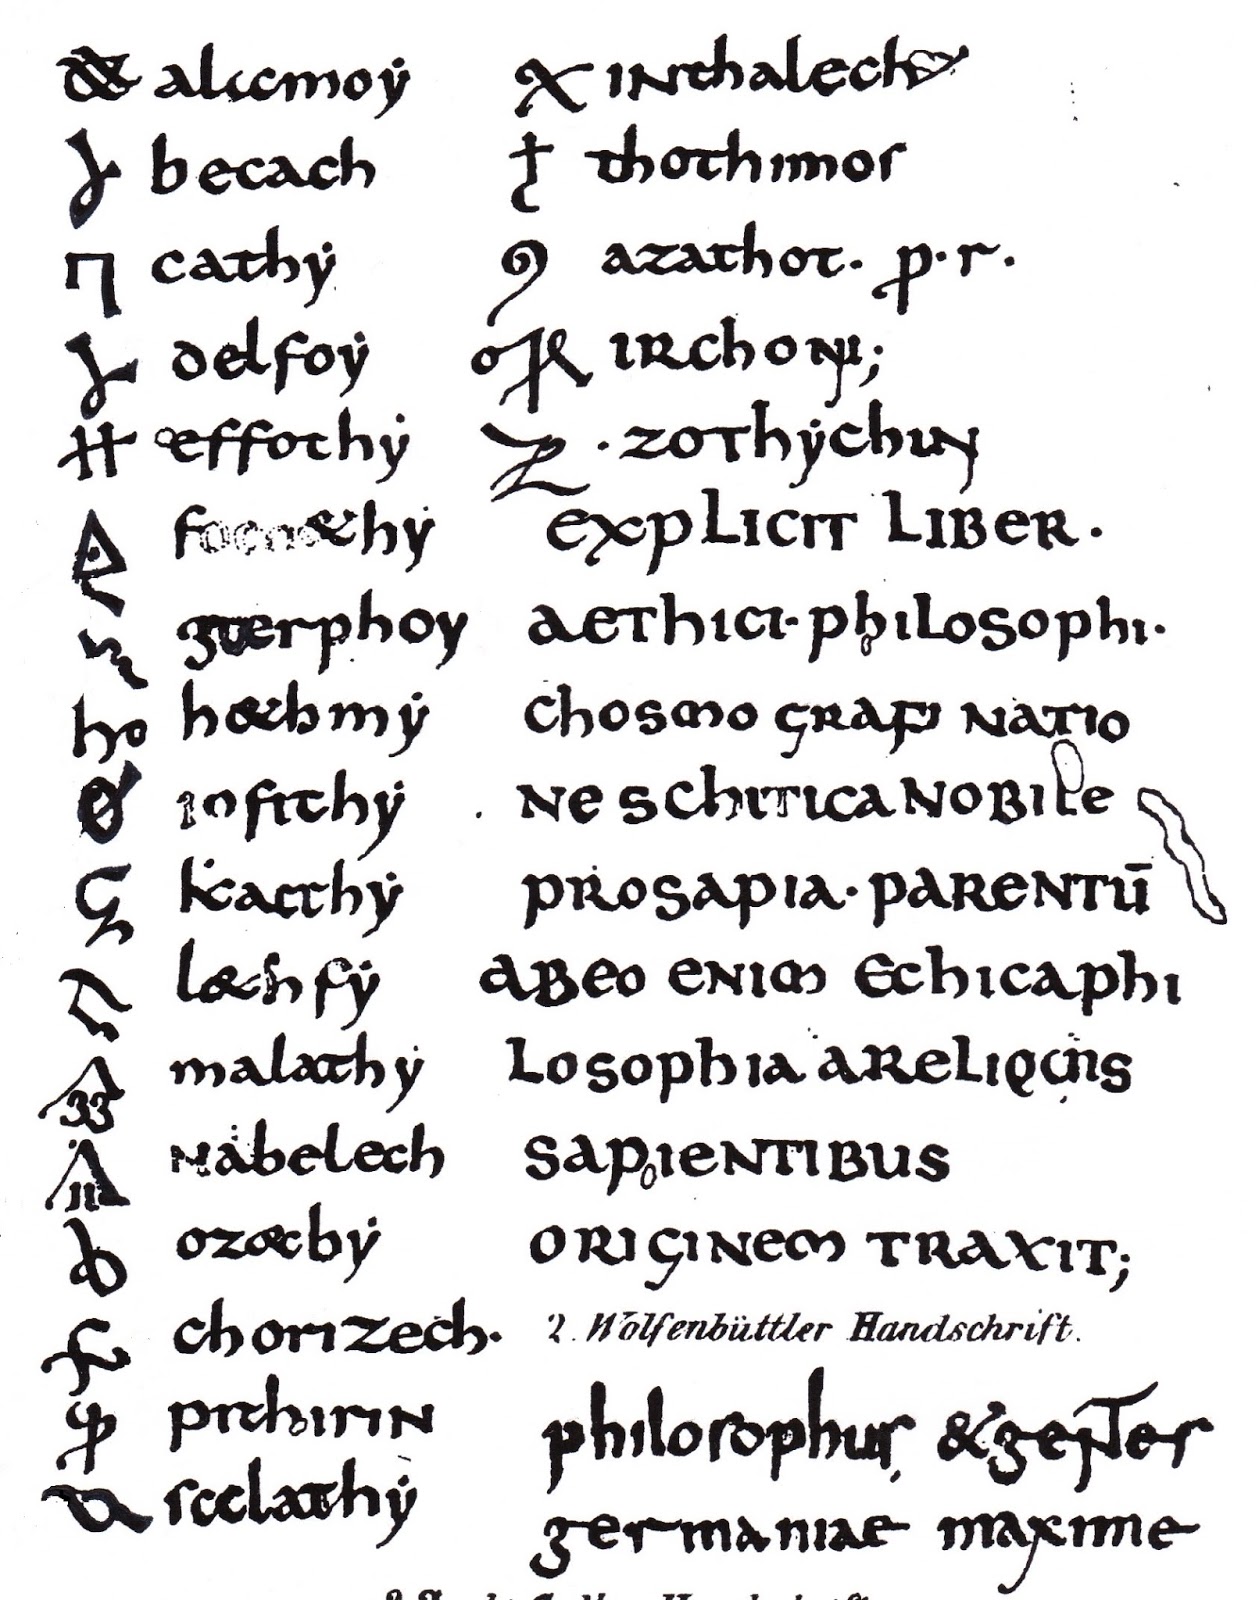 alccmoẏ
becach
cathẏ
delfoẏ
effothẏ
hẏ
gterphoy
hæbmẏ
iofithẏ
kacthẏ
læhfẏ
malathẏ
Nabelech
ozæbẏ
chorizech.
pithirin
scclathẏ
inthalech
thothimos
azathot. p.r.
irchoni;
Z . zothẏchin
explicit liber.
aethici. philosophi.
chosmo grafi natio
ne schitica nobile
prosapia. parentū
abeo enim ethicaphi
losophia areliquis
sapientibus
originem traxit;
2. Wolfenbüttler Handschrift.
philosophus & gentes
germaniae maxime